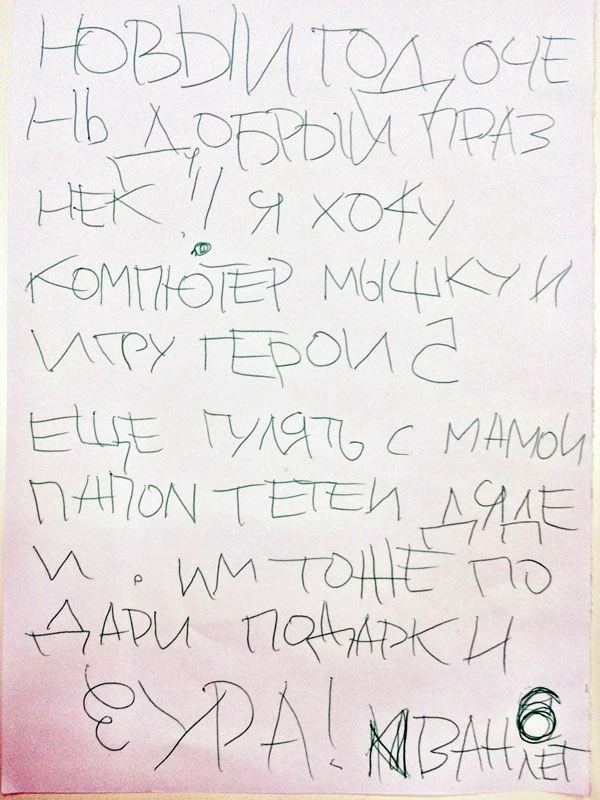 НОВЫЙ ГОД ОЧЕ
НЬ ДОБРЫЙ ПРАЗ
НЕК!! Я ХОЧУ
КОМПЮТЕР МЫШКУ И
ИГРУ ГЕРОИ 5
ЕЩЕ ГУЛЯТЬ С МАМОИ
ПАПОИ ТЕТЕИ ДЯДЕ
И. ИМ ТОЖЕ ПО
ДАРИ ПОДАРКИ
УРА! ИВАН 6
ЛЕТ